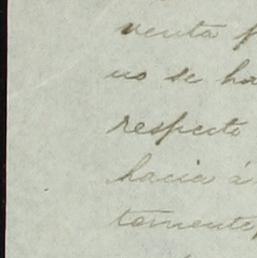 venta
no se ha
respecto
hacia á
tamente,